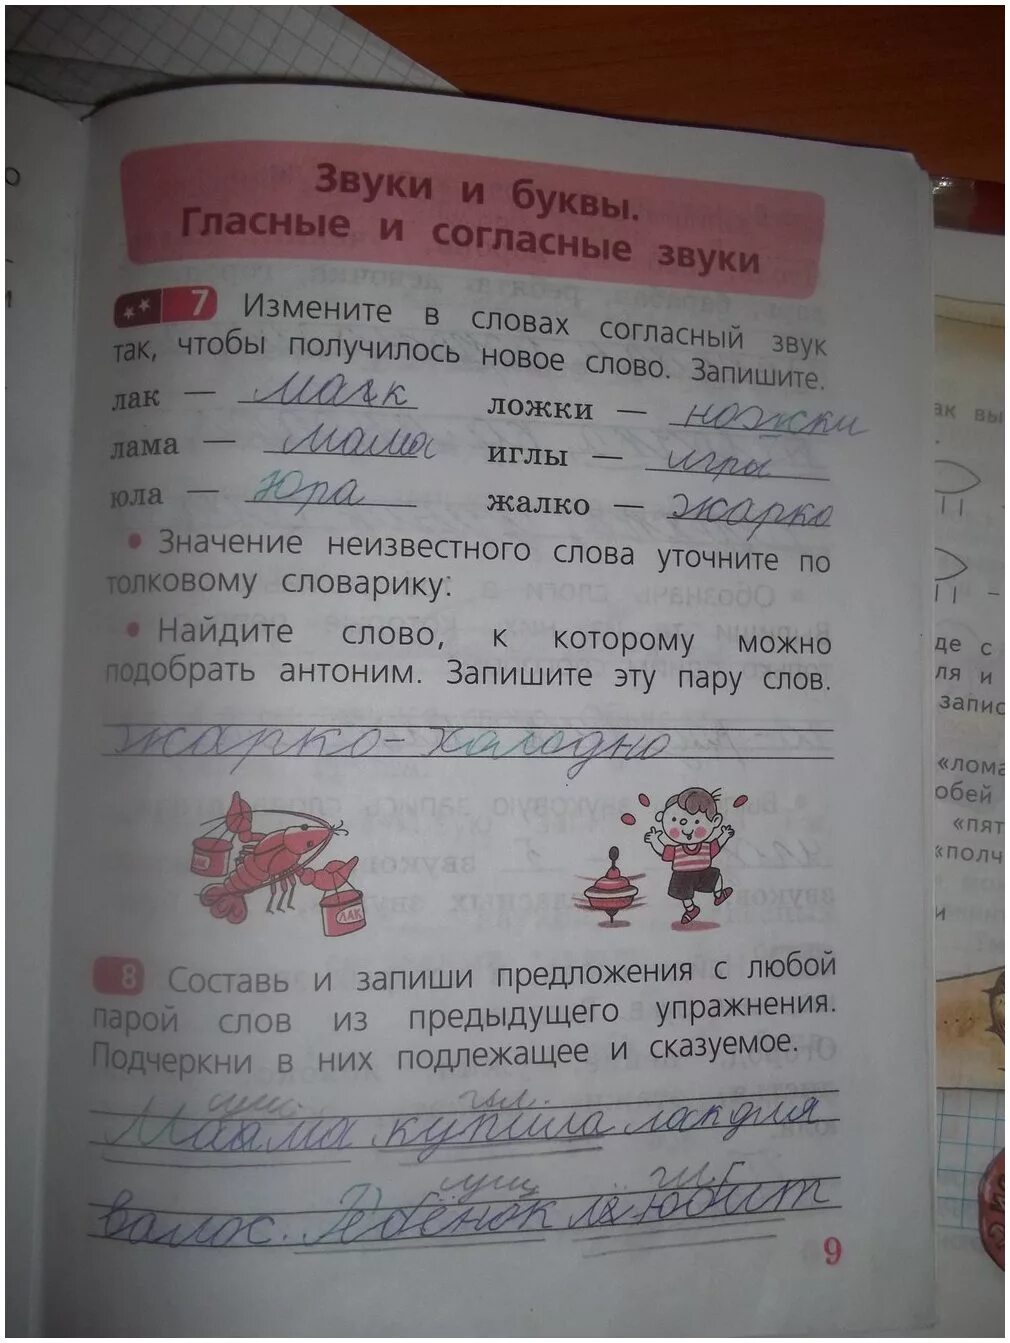 Звуки и буквы.
Гласные и согласные звуки
7 Измените в словах согласный звук
так, чтобы получилось новое слово. Запишите.
лак — мак ложки — ножки
лама — мама иглы — игры
юла — Юра жалко — жарко
• Значение неизвестного слова уточните по
толковому словарику:
• Найдите слово, к которому можно
подобрать антоним. Запишите эту пару слов.
жарко - холодно
ЛАК
ЛАК
8 Составь и запиши предложения с любой
парой слов из предыдущего упражнения.
Подчеркни в них подлежащее и сказуемое.
сущ. гл.
Мама купила лак для
сущ. гл.
волос. Ребёнок любит
9
ак вы
де с
ля и
запис
«лома
обей
«пят
«полч
и